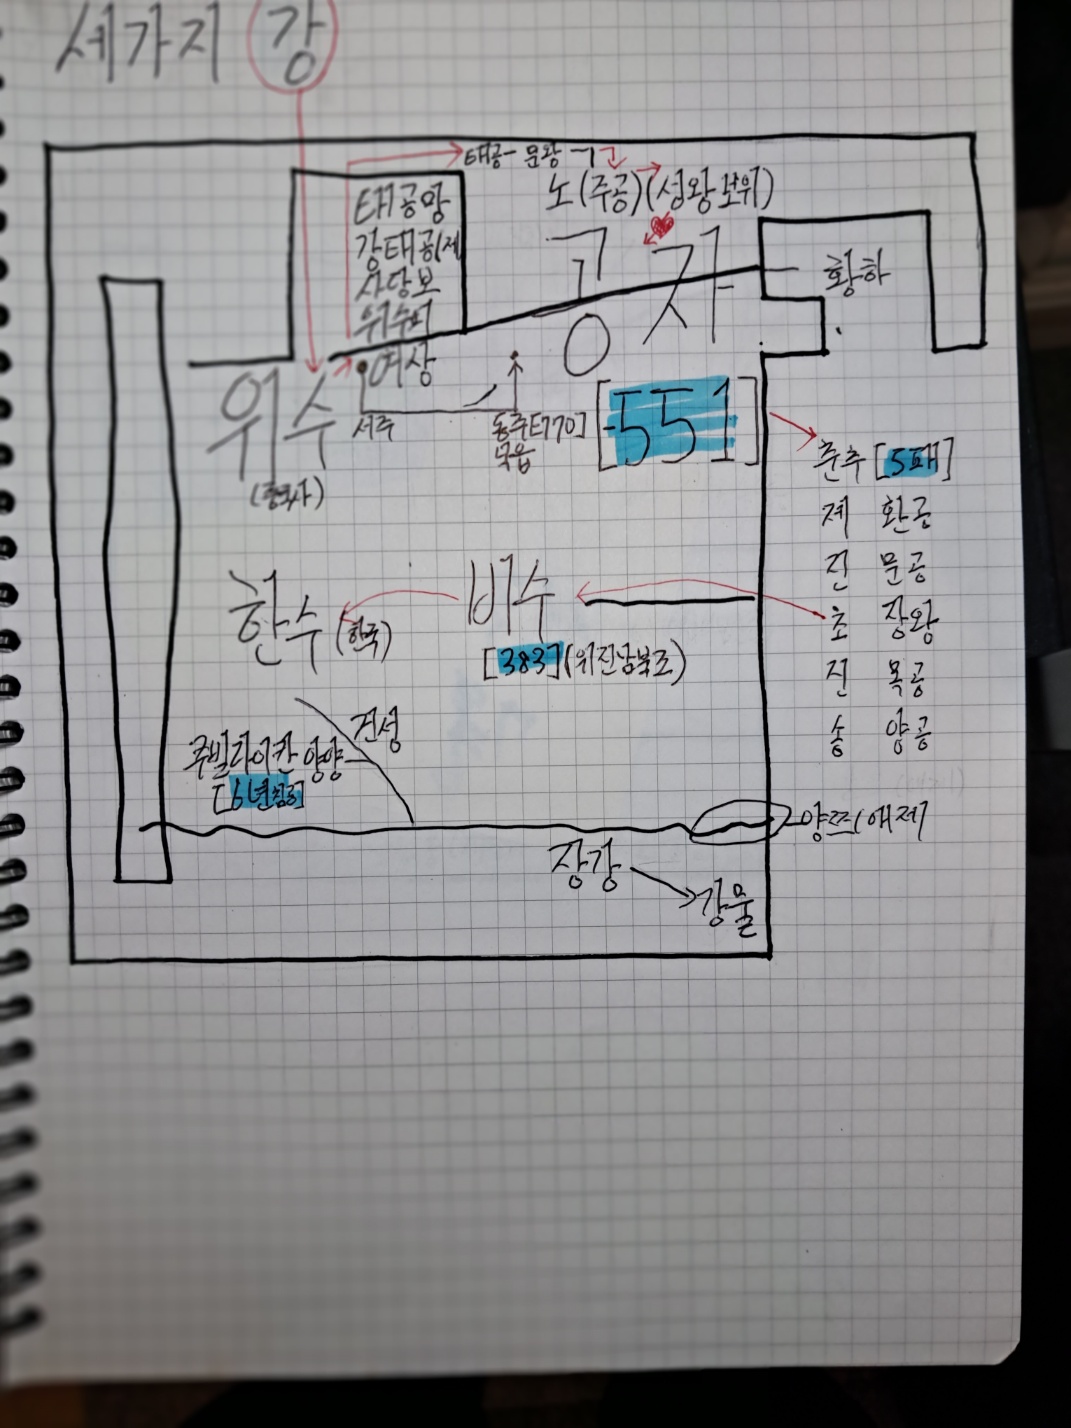 세가지 강
태공 - 문왕 ㄱ
노(주공)(성왕보위)
태공망
강태공(제
사당보
위수에
여상
공자
황하
위수
서주
동주[-770]
낙읍
[-551]
춘추 [5패]
제 환공
진 문공
초 장왕
진 목공
송 양공
한수 (한국)
비수
[383] (위진남북조)
쿠빌라이칸 양양
[6년항전]
진성
양쯔(애제
장강
강물